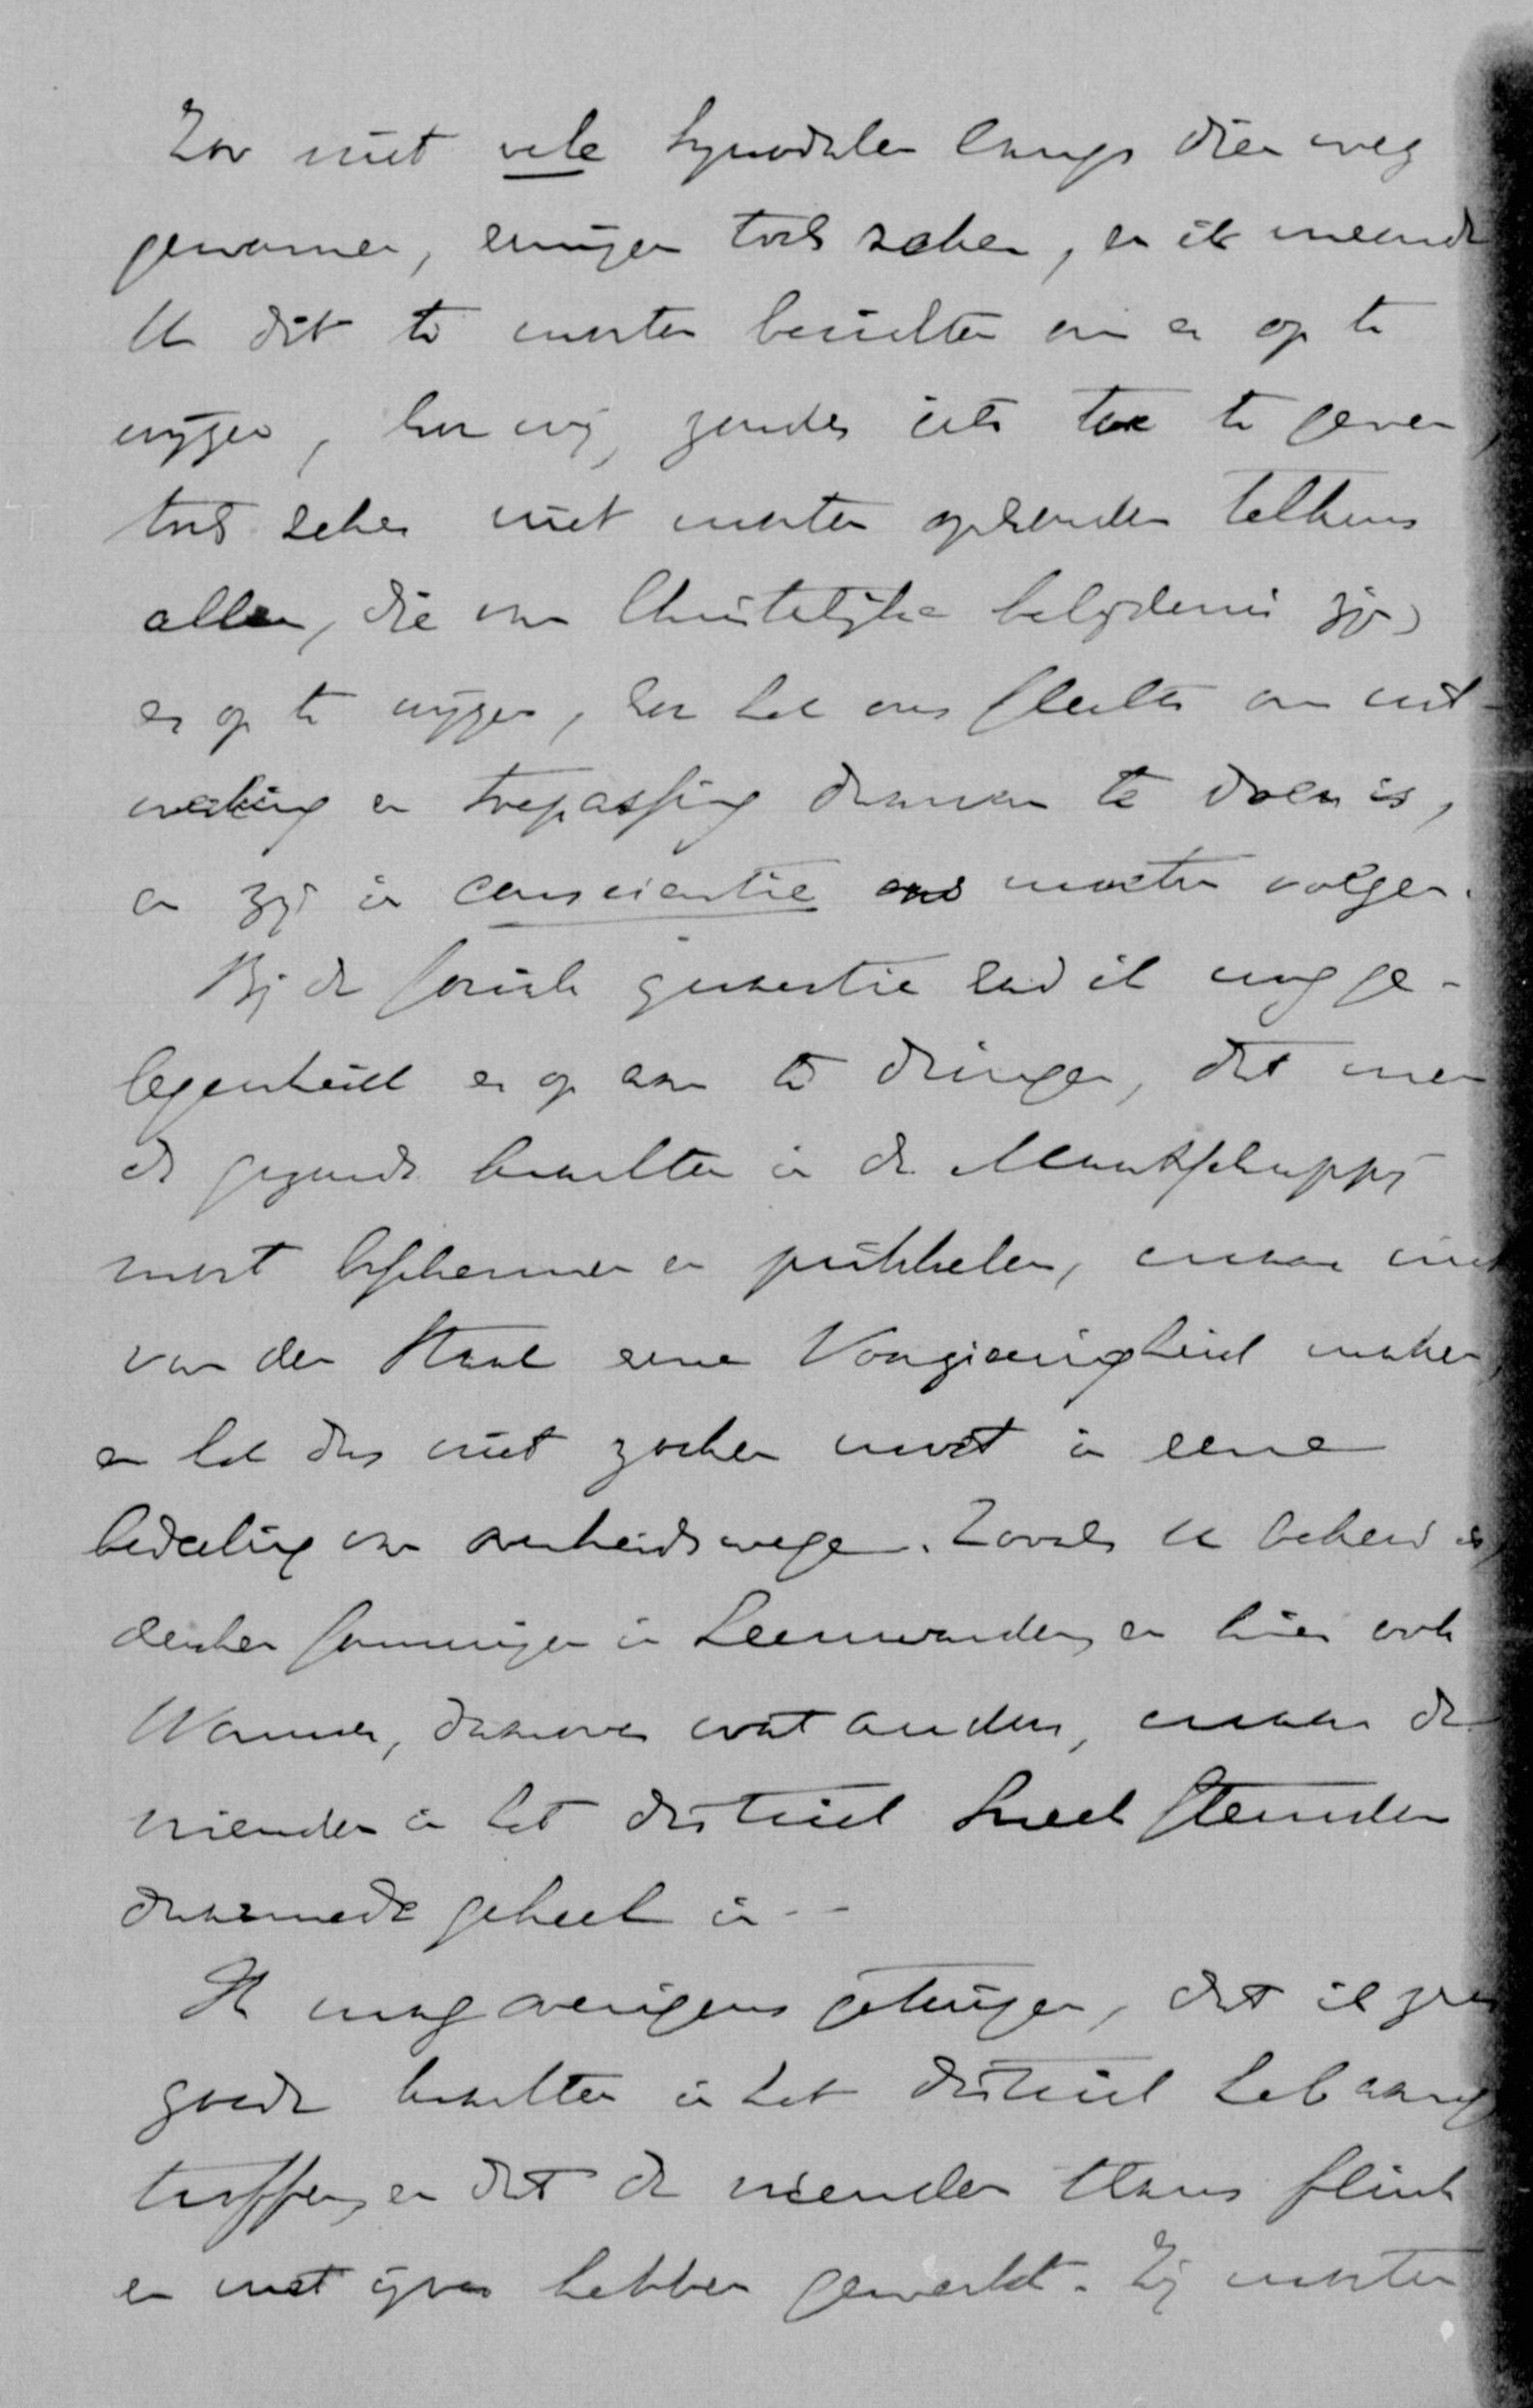 Zoo niet vele Synodalen langs dien weg
gewonnen, eenigen toch zeker, en ik meende
U dit te moeten berichten om er op te
wijzen, hoe wij, zonder iets toe te geven,
toch zeker niet moeten ophouden telkens
allen, die van Christelijke belijdenis zijn
er op te wijzen, hoe het ons slechts om uit-
werking en toepassing daarvan te doen is,
en zij in conscientie ons moeten volgen.
Bij de sociale quaestie had ik nog ge-
legenheid er op aan te dringen, dat men
de gezonde krachten in de Maatschappij
moet beschermen en prikkelen, maar niet
van den Staat eene Voorzienigheid maken,
en het dus niet zoeken moet in eene
bedeeling van overheidswege. Zooals U bekend is,
denken sommigen in Leeuwarden, en hier ook
Wormser, daarover wat anders, maar de
vrienden in het district Sneek stemden
daarmede geheel in. -
Ik mag overigens getuigen, dat ik zeer
goede krachten in het district heb aange
troffen, en dat de vrienden thans flink
en met ijver hebben gewerkt. Zij moeten